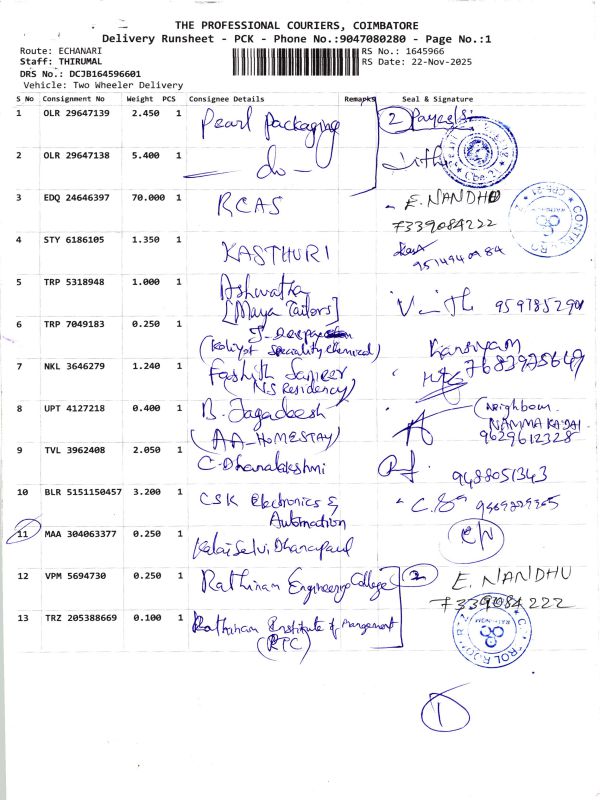 THE PROFESSIONAL COURIERS, COIMBATORE
Delivery Runsheet - PCK - Phone No.:9047080280 - Page No.:1
Route: ECHANARI
RS No.: 1645966
Staff: THIRUMAL
RS Date: 22-Nov-2025
DRS No.: DCJB164596601
Vehicle: Two Wheeler Delivery
S No Consignment No Weight PCS Consignee Details Remarks Seal & Signature
1 OLR 29647139 2.450 1 Pearl Packaging 2
2 OLR 29647138 5.400 1 - do -
3 EDQ 24646397 70.000 1 RCAS E. NANDHU
7339084222
4 STY 6186105 1.350 1 KASTHURI
5 TRP 5318948 1.000 1 Ashwatha
[Maya Tailors]
6 TRP 7049183 0.250 1
Speciality Chemical)
7 NKL 3646279 1.240 1 7683975649
(N.S Residency)
8 UPT 4127218 0.400 1 B. Jagadeesh (Neighbour
(AA-HOMESTAY) NAMMA KADAI
9629612328
9 TVL 3962408 2.050 1 C. Dhanalakshmi 9488051343
10 BLR 5151150457 3.200 1 CSK Electronics &
Automation
11 MAA 304063377 0.250 1 KalaiSelvi Dhanapaul
12 VPM 5694730 0.250 1 Rathinam Engineering College 2 E. NANDHU
7339084222
13 TRZ 205388669 0.100 1 Rathinam Institute of Management
(RTC)
1